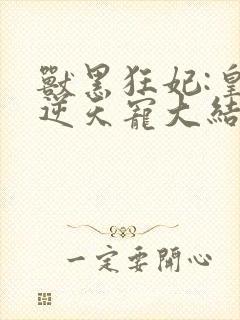 獸黑狂妃:皇
逆天寵大結
一定要開心